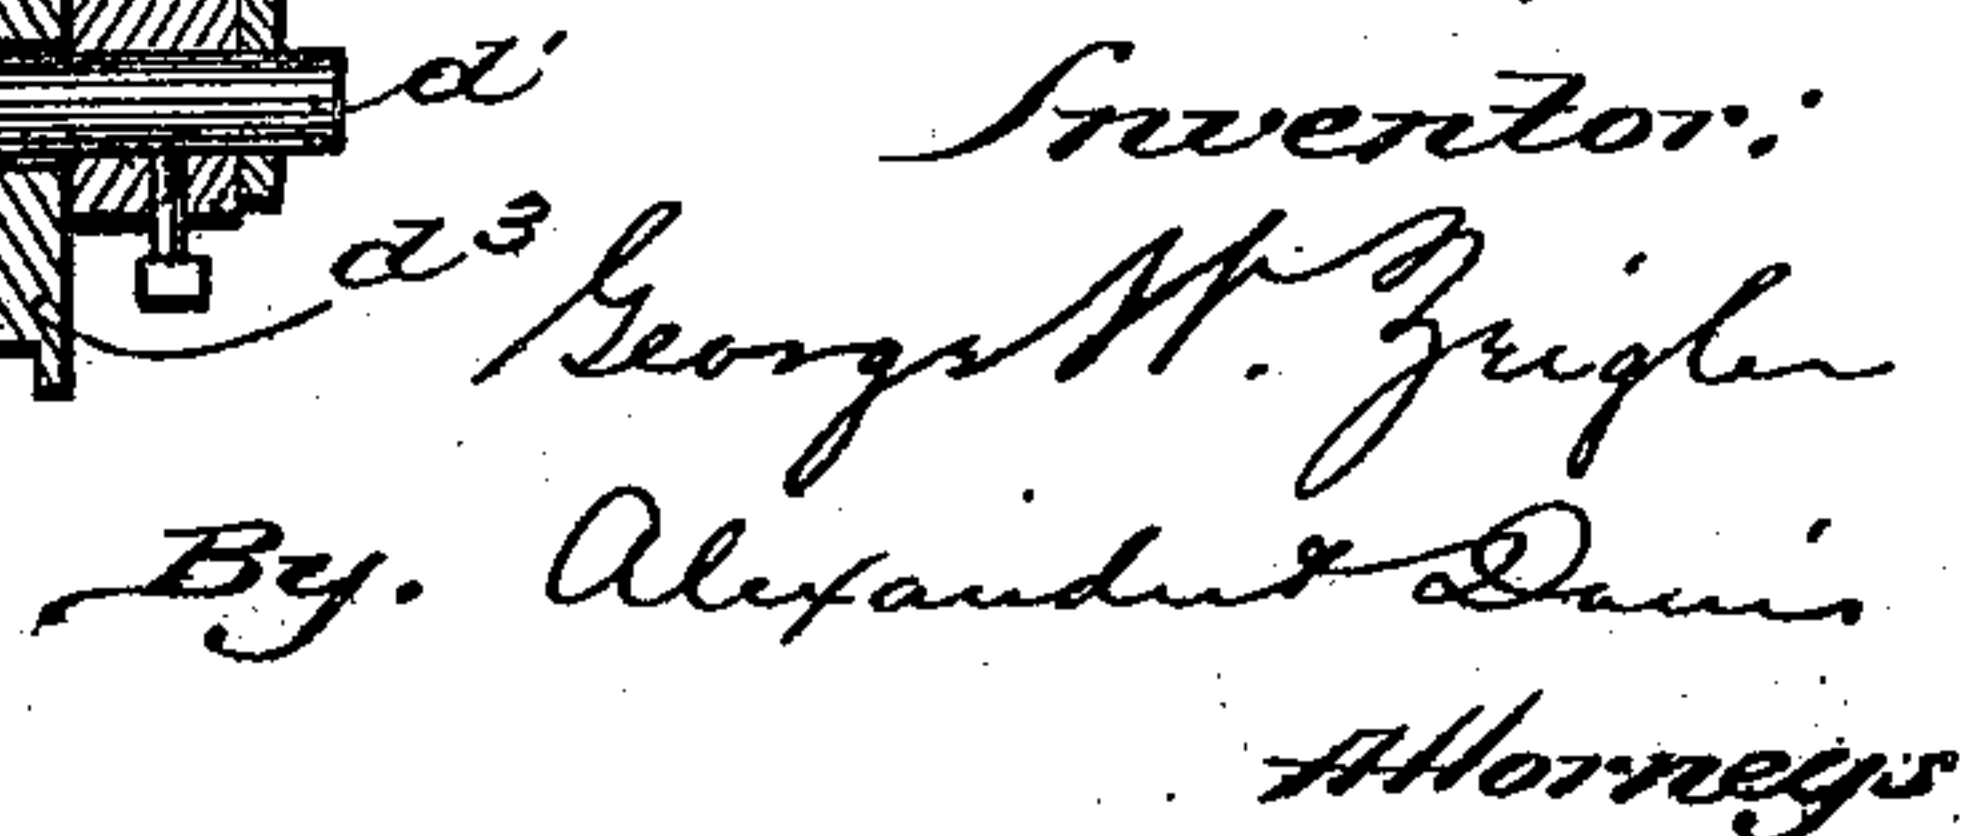 d'
Inventor:
d³
George W. Zeigler
By. Alexander & Davis
Attorneys